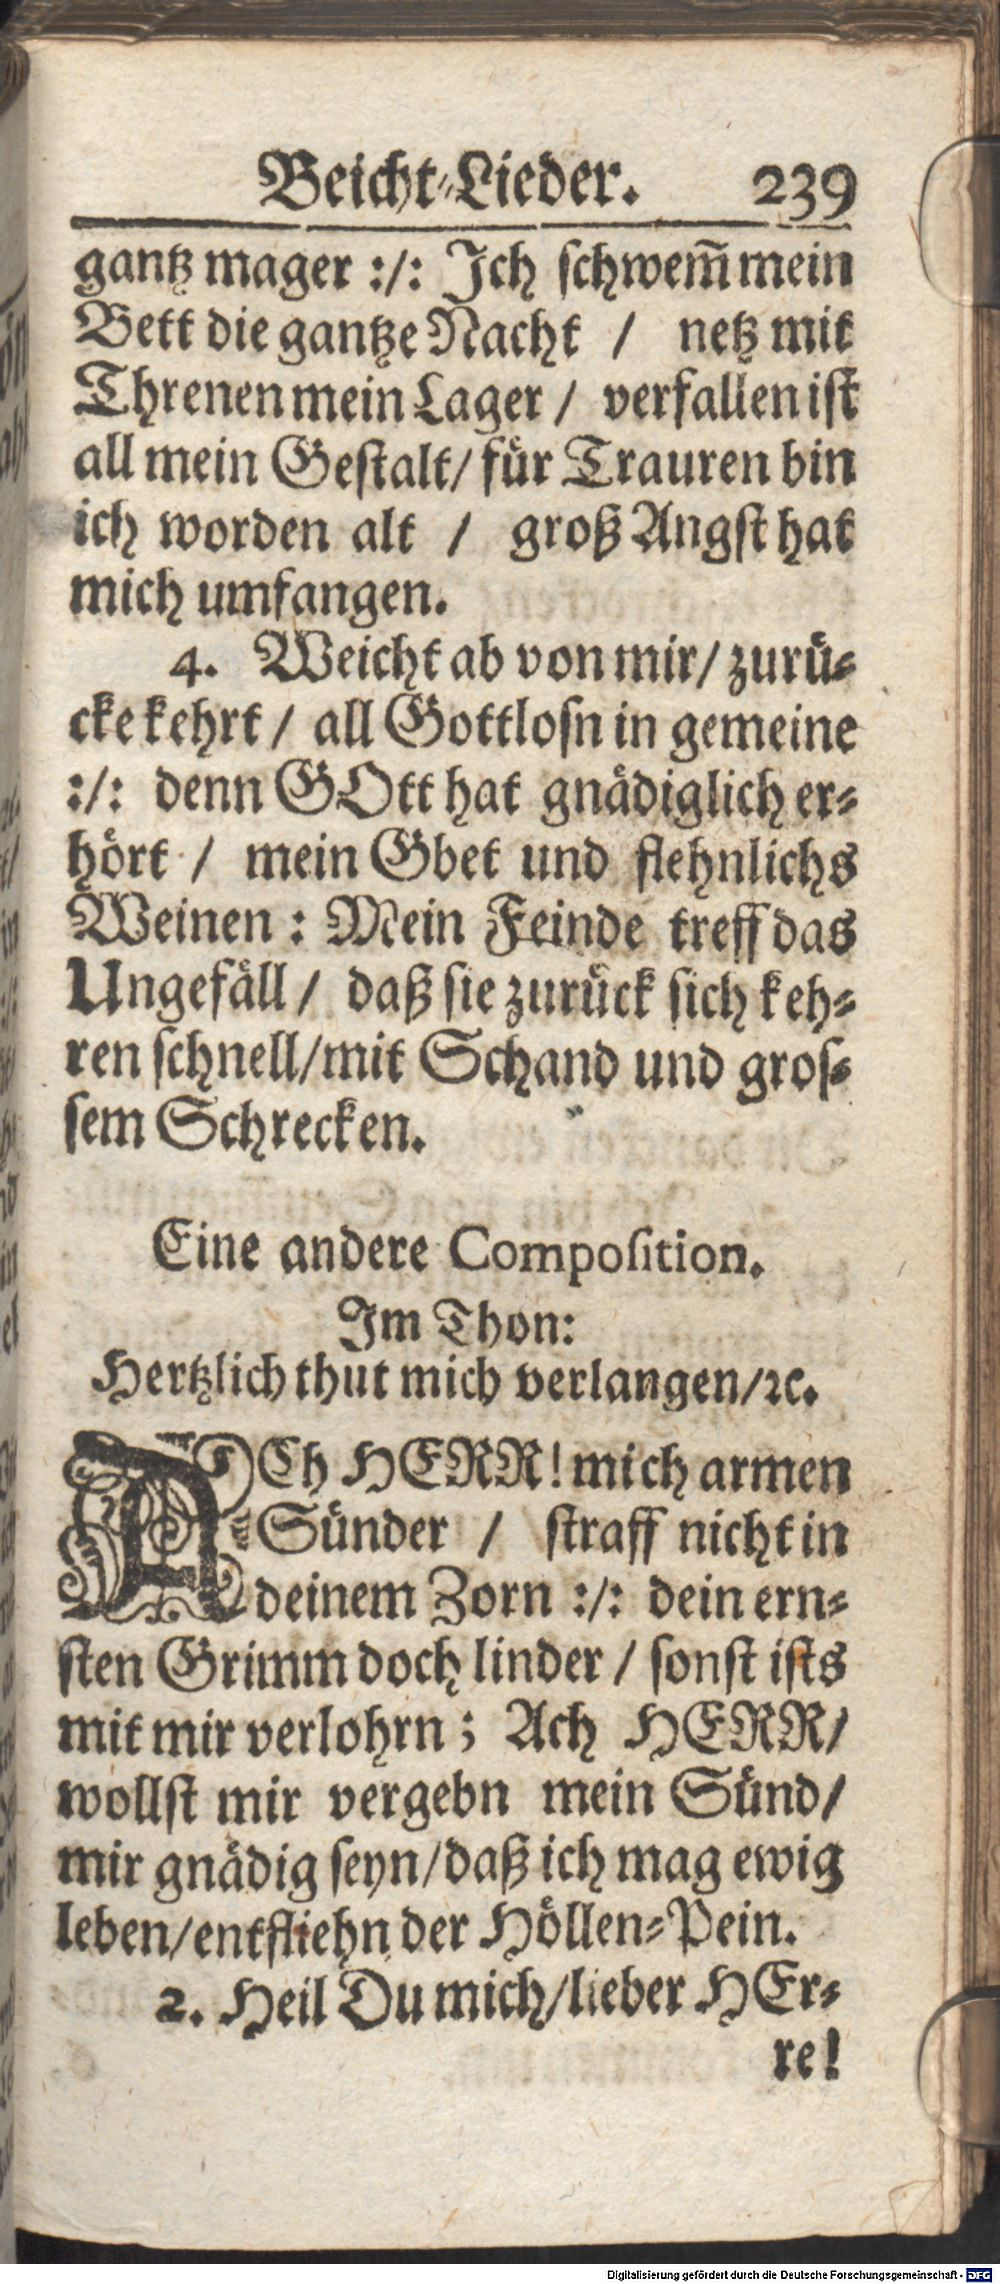 Beicht-Lieder. 239
gantz mager :/: Ich schwem̃ mein
Bett die gantze Nacht / netz mit
Threnen mein Lager / verfallen ist
all mein Gestalt/ für Trauren bin
ich worden alt / groß Angst hat
mich umfangen.
4. Weicht ab von mir/ zurü-
cke kehrt / all Gottlosn in gemeine
:/: denn GOtt hat gnädiglich er-
hört / mein Gbet und flehnlichs
Weinen : Mein Feinde treff das
Ungefäll / daß sie zurück sich keh-
ren schnell/mit Schand und gros-
sem Schrecken.
Eine andere Composition.
Im Thon:
Hertzlich thut mich verlangen/ꝛc.
ACh HERR! mich armen
Sünder / straff nicht in
deinem Zorn :/: dein ern-
sten Grimm doch linder / sonst ists
mit mir verlohrn ; Ach HERR/
wollst mir vergebn mein Sünd/
mir gnädig seyn/daß ich mag ewig
leben/entfliehn der Höllen-Pein.
2. Heil Du mich/lieber HEr-
re!
Digitalisierung gefördert durch die Deutsche Forschungsgemeinschaft - DFG